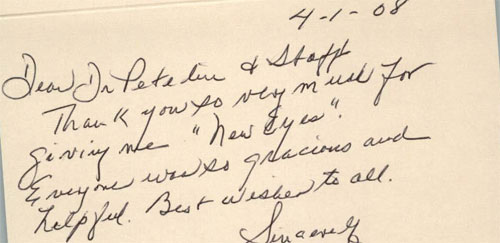 4-1-08
Dear Dr Petelin & Staff
Thank you so very much for
giving me "New Eyes".
Everyone was so gracious and
helpful. Best wishes to all.
Sincerely